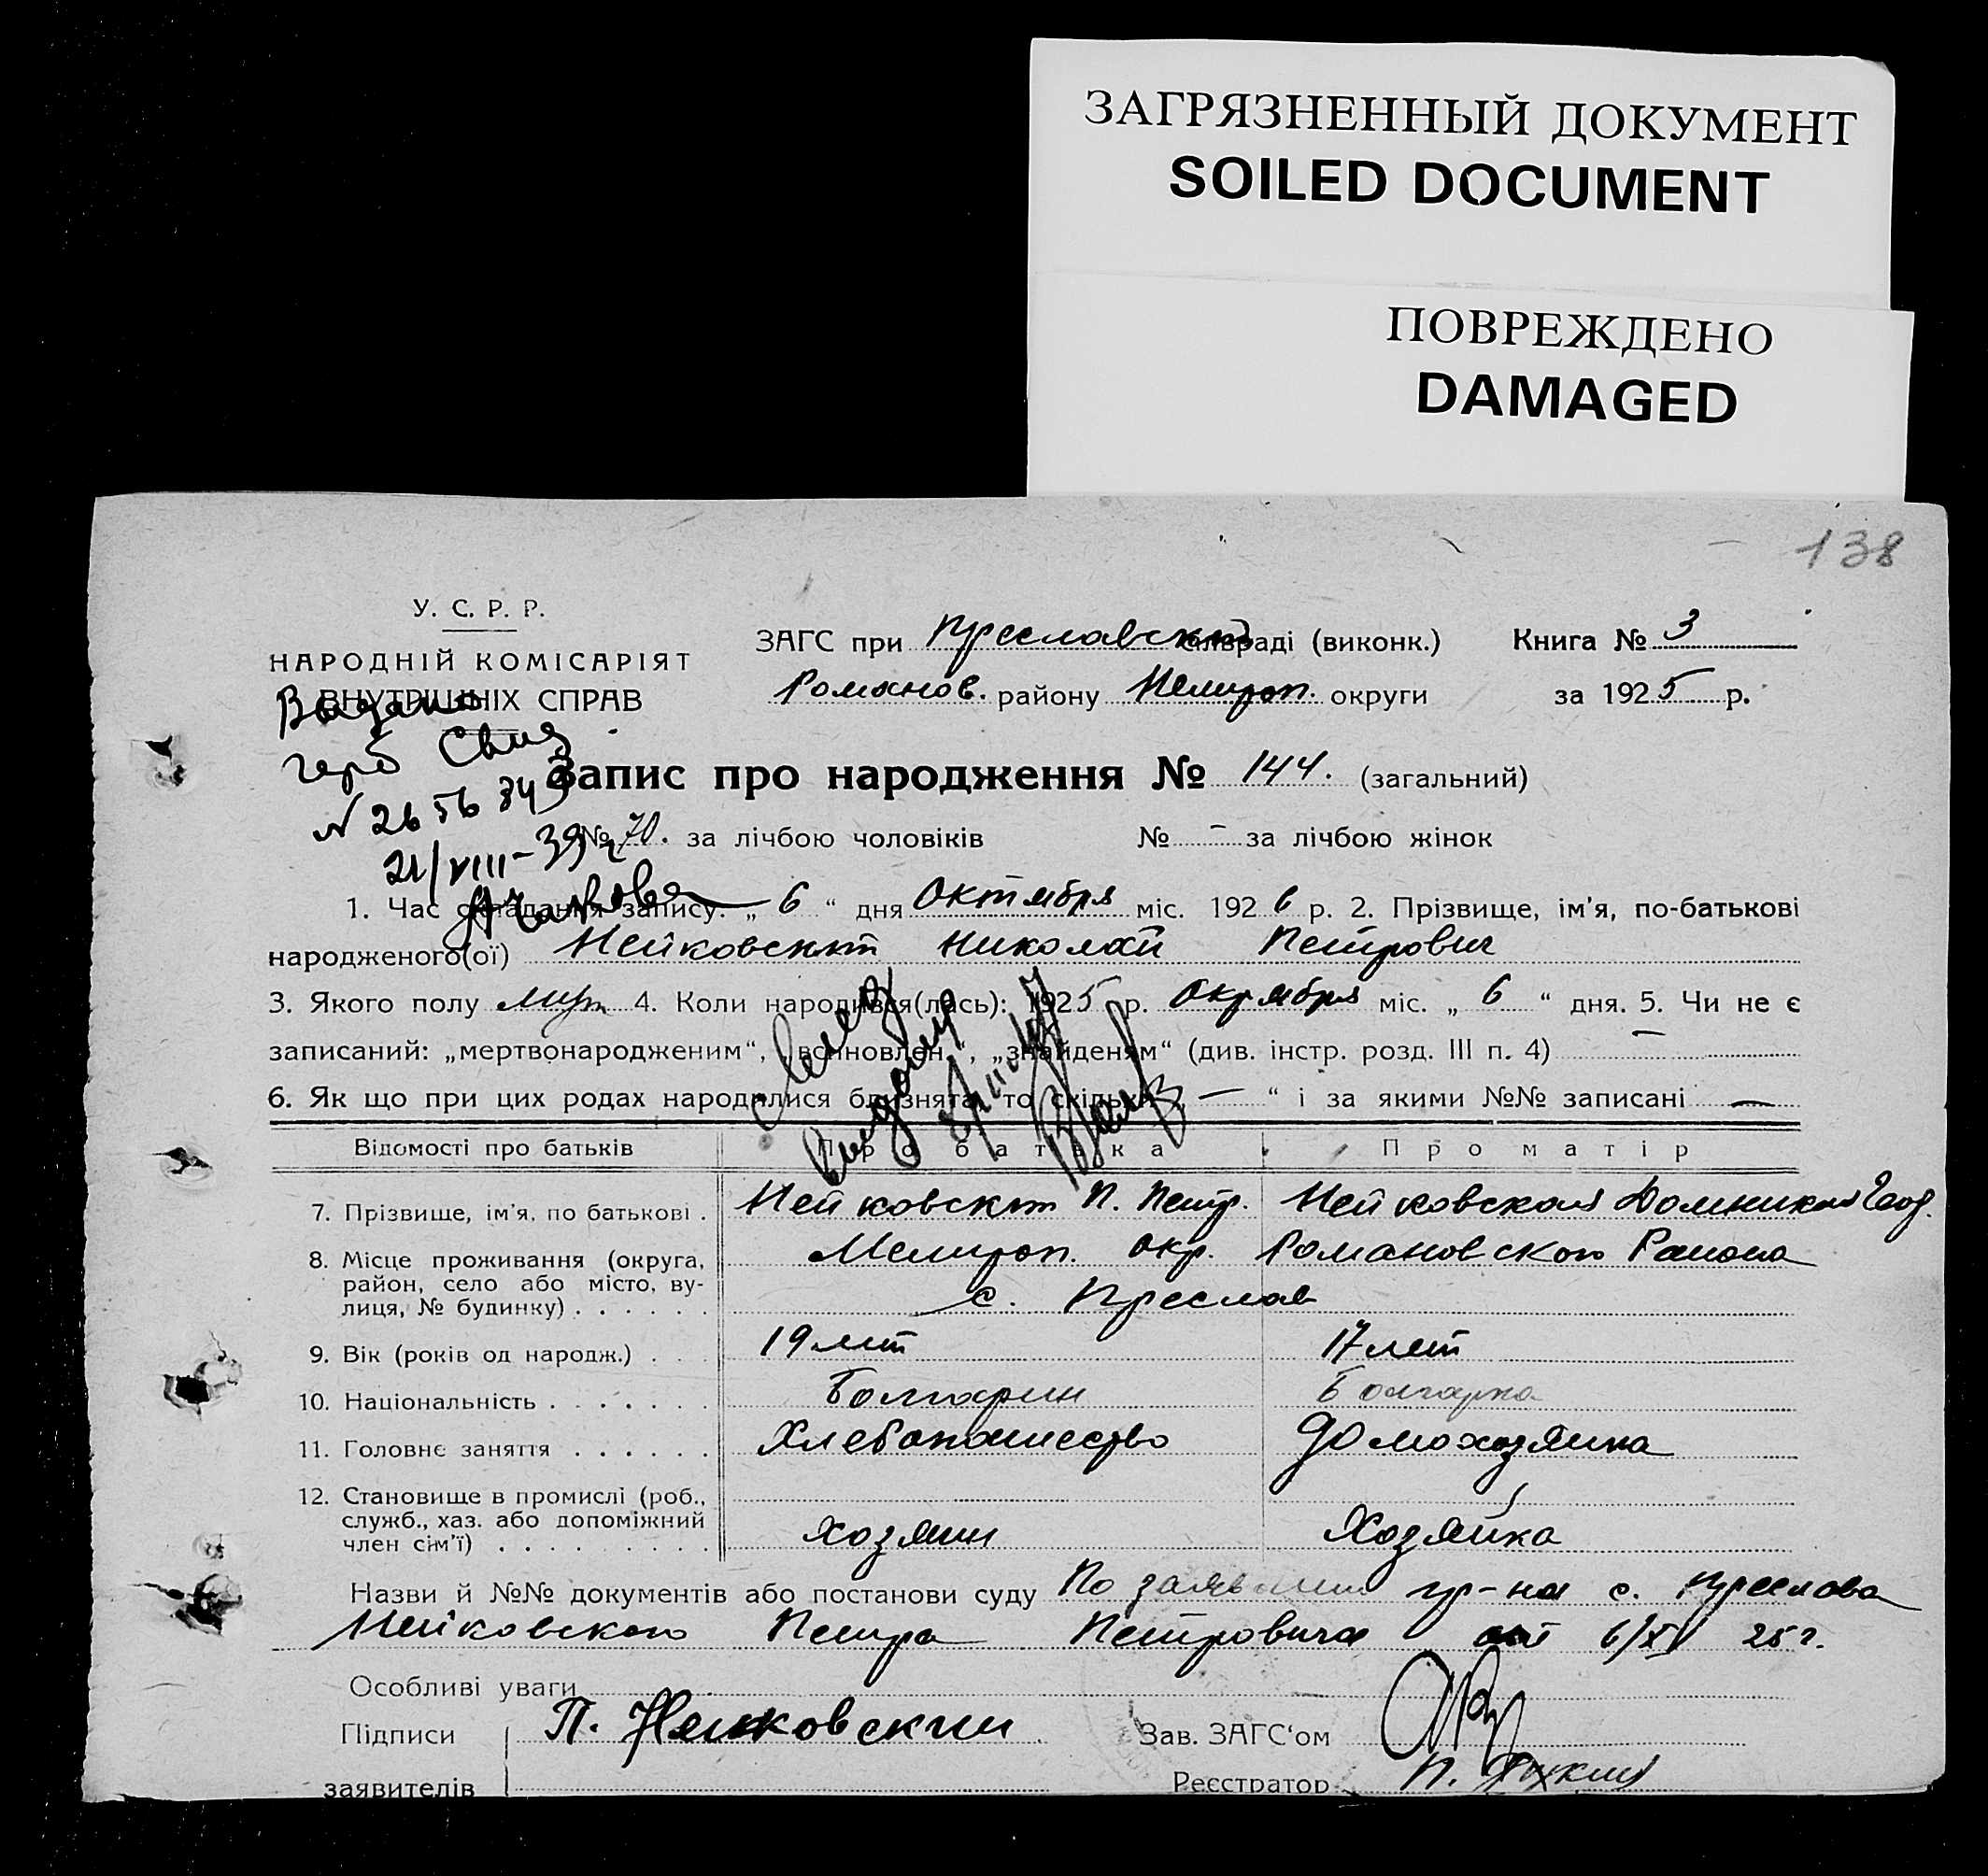 ЗАГРЯЗНЕННЫЙ ДОКУМЕНТ
SOILED DOCUMENT
ПОВРЕЖДЕНО
DAMAGED
138
У. С. Р. Р.
НАРОДНІЙ КОМІСАРІЯТ
ВНУТРІШНІХ СПРАВ
ЗАГС при Преславской сільраді (виконк.) Книга № 3
Романов. району Мелитоп. округи за 1925 р.
Выдано
герб Свид
N 2656843
21/VIII-39 г
Запис про народження № 144. (загальний)
№ 70. за лічбою чоловіків № - за лічбою жінок
1. Час складання запису: „ 6 “ дня Октября міс. 1926 р. 2. Прізвище, ім'я, по-батькові
народженого(ої) Нейковский Николай Петрович
3. Якого полу муж 4. Коли народився(лась): 1925 р. Октября міс. „ 6 “ дня. 5. Чи не є
записаний: „мертвонародженим“, „всиновлен.“, „знайденям“ (див. інстр. розд. III п. 4) —
6. Як що при цих родах народилися близнята, то скільки „ — “ і за якими №№ записані —
Відомості про батьків Про батька Про матір
7. Прізвище, ім'я, по батькові . Нейковский П. Петр. Нейковская Домникия Геор.
8. Місце проживання (округа, район, село або місто, вулиця, № будинку) . . . . . . Мелитоп. окр. Романовского Района
с. Преслав
9. Вік (років од народж.) . . . 19 лет 17 лет
10. Національність . . . . . . . Болгарин Болгарка
11. Головнє заняття . . . . . . Хлебопашество Домохозяйка
12. Становище в промислі (роб., служб., хаз. або допоміжний член сім'ї) . . . . . . . . . Хозяин Хозяйка
Назви й №№ документів або постанови суду По заявлении гр-на с. Преслава
Нейковского Петра Петровича от 6/XI 25 г.
Особливі уваги
Підписи П. Нейковский Зав. ЗАГС'ом
заявителів Реєстратор П.